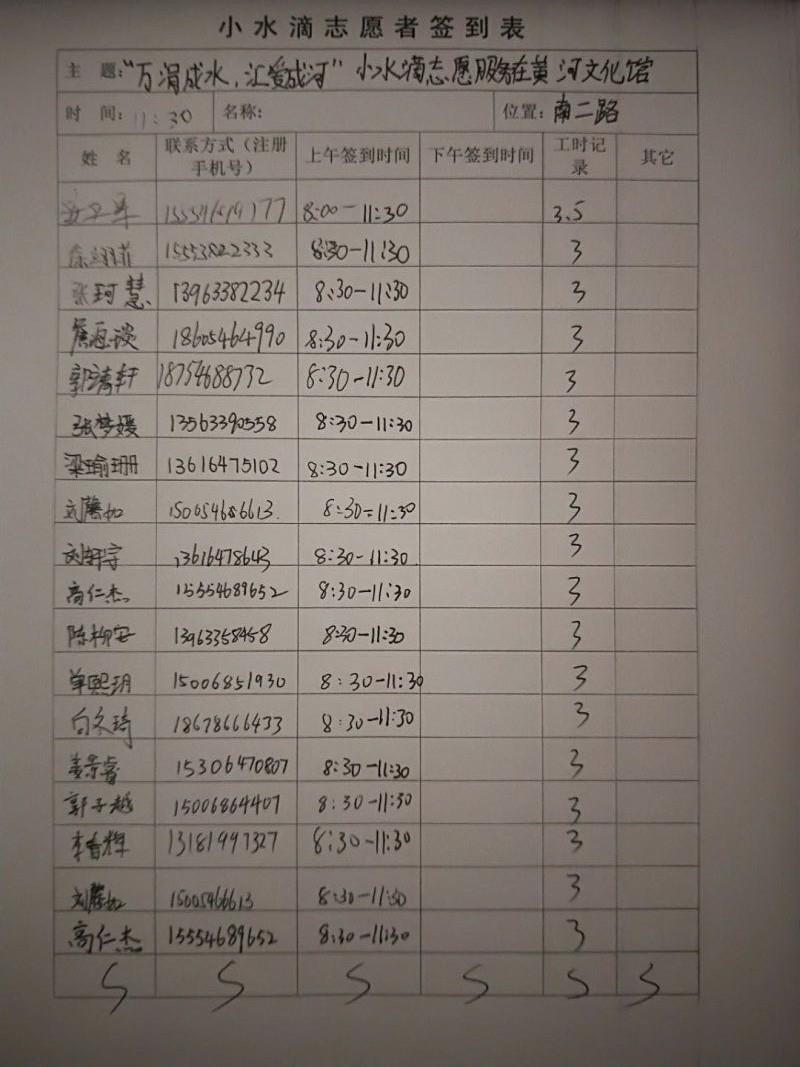 小水滴志愿者签到表
主 题：“万涓成水，汇爱成河”小水滴志愿服务在黄河文化馆
时 间：11:30 名称： 位置：南二路
姓 名 联系方式（注册手机号） 上午签到时间 下午签到时间 工时记录 其它
8:00-11:30 3.5
15553822333 8:30-11:30 3
张珂慧 13963382234 8:30-11:30 3
18605464990 8:30-11:30 3
郭清轩 18754688732 8:30-11:30 3
张梦媛 13563390558 8:30-11:30 3
梁瑜珊 13616475102 8:30-11:30 3
刘藤如 150054686613 8:30-11:30 3
刘轩宇 13616478643 8:30-11:30 3
高仁杰 15554689652 8:30-11:30 3
陈柳安 13963358458 8:30-11:30 3
单熙玥 15006851930 8:30-11:30 3
白冬琦 18678666433 8:30-11:30 3
姜景睿 15306470807 8:30-11:30 3
郭子越 15006864407 8:30-11:30 3
李香辉 13181997327 8:30-11:30 3
刘藤如 15005466613 8:30-11:30 3
高仁杰 15554689652 8:30-11:30 3
S S S S S S